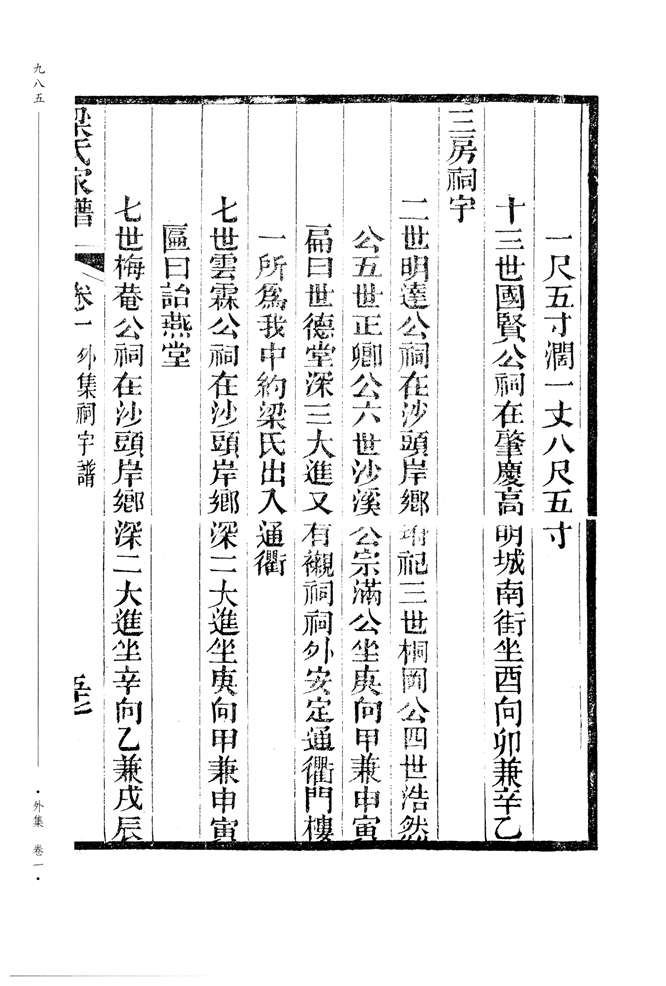 一尺五寸濶一丈八尺五寸
十三世國賢公祠在肇慶高明城南街坐酉向卯兼辛乙
三房祠宇
二世明達公祠在沙頭岸鄉祀三世桐岡公四世浩然
公五世正卿公六世沙溪公宗滿公坐庚向甲兼申寅
扁曰世德堂深三大進又有襯祠祠外安定通衢門樓
一所爲我中約梁氏出入通衢
七世雲霖公祠在沙頭岸鄉深二大進坐庚向甲兼申寅
匾曰詒燕堂
七世梅菴公祠在沙頭岸鄉深二大進坐辛向乙兼戌辰
梁氏家譜 卷一 外集祠宇譜
九八五
·外集 卷一·